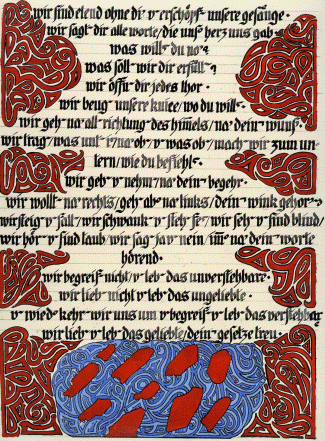 wir sind elend ohne di v erschöpf unsere gesänge·
wir sagt dir alle worte/die uns herz uns gab·
was willst du no?
was soll wir dir erfüll?
wir öffn dir jedes thor·
wir beug unsere kniee/wo du will·
wir geh na all richtung des himels/na dein wuns·
wir trag/was unt na ob/v was ob/mach wir zum un-
tern/wie du befiehls·
wir geb v nehm na dein begehr·
wir wollt na rechts/geh ab na links/dein wink gehor
wir steig v fall/wir schwank v steh fest/wir seh v sind blind/
wir hör v sind taub/wir sag ja v nein/im na dein worte
hörend·
wir begreif nicht v leb das unverstehbare·
wir lieb nicht v leb das ungeliebte·
v wied kehr wir uns um v begreif v leb das verstehbar
wir lieb v leb das geliebte/dein gesetze treu·